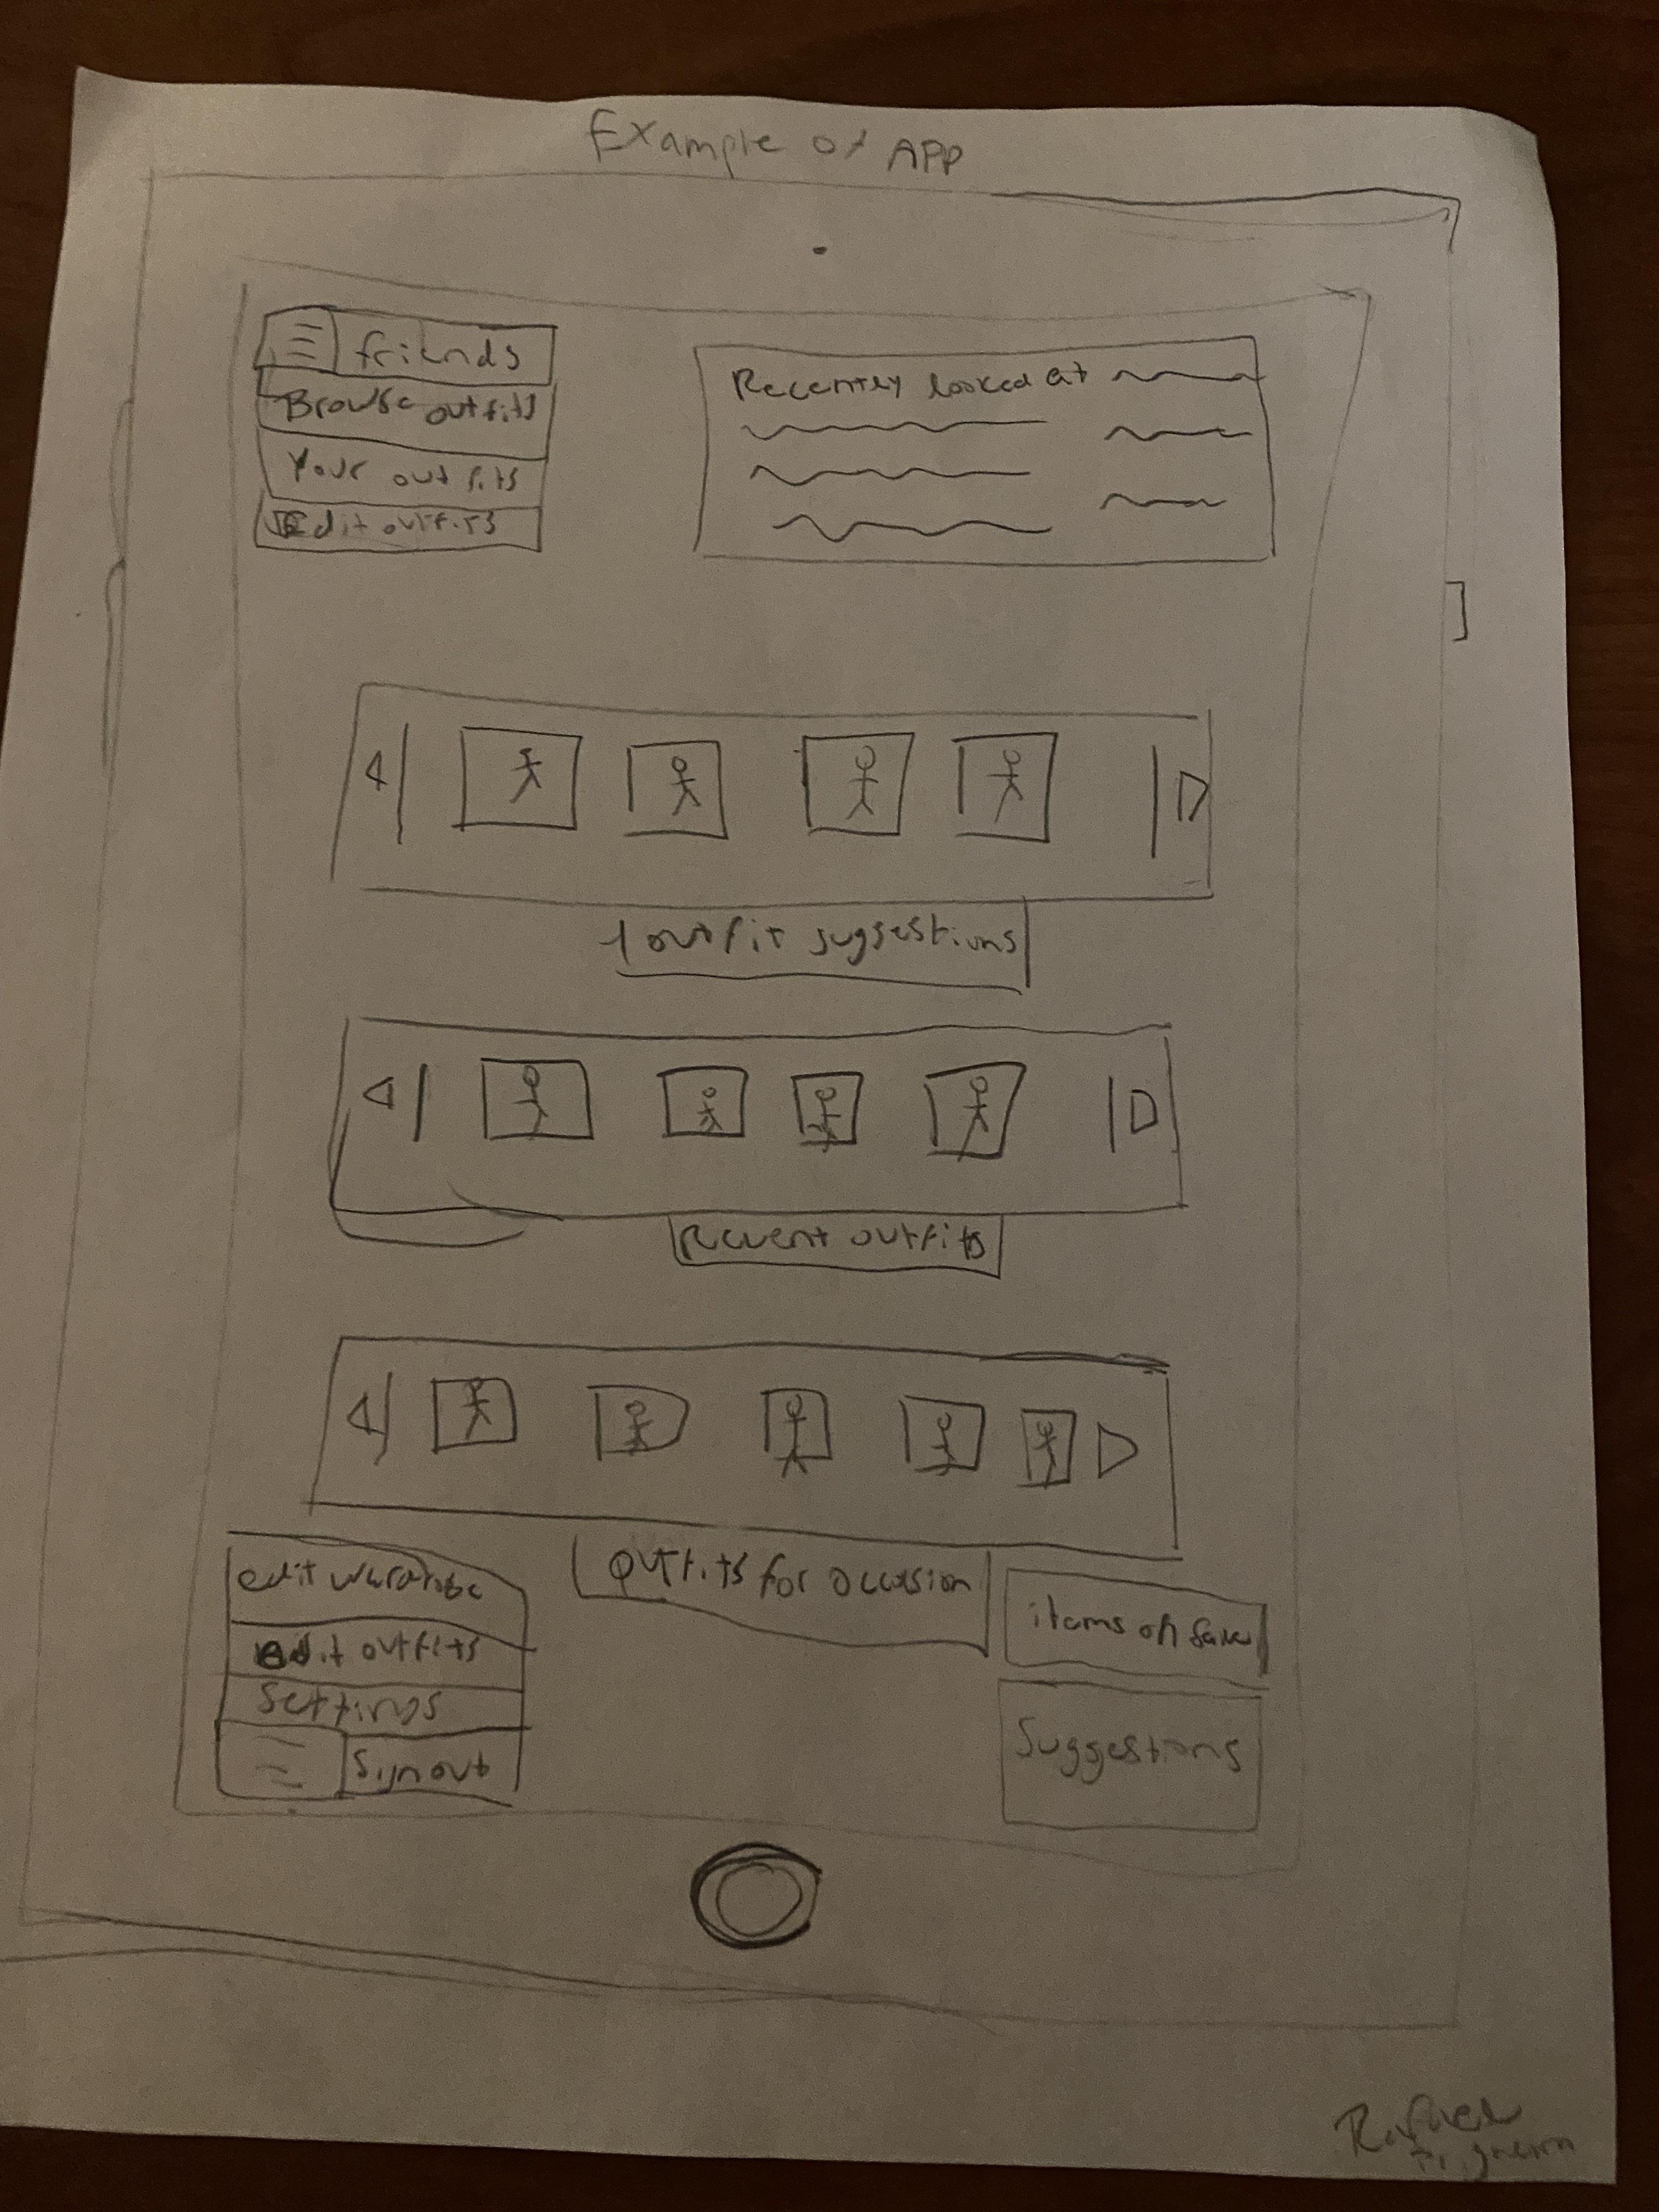 Example of APP
friends
Browse outfits
Your outfits
Edit outfits
Recently looked at
outfit suggestions
Recent outfits
outfits for occasion
edit wardrobe
edit outfits
Settings
Sign out
items on sale
Suggestions
Rafael